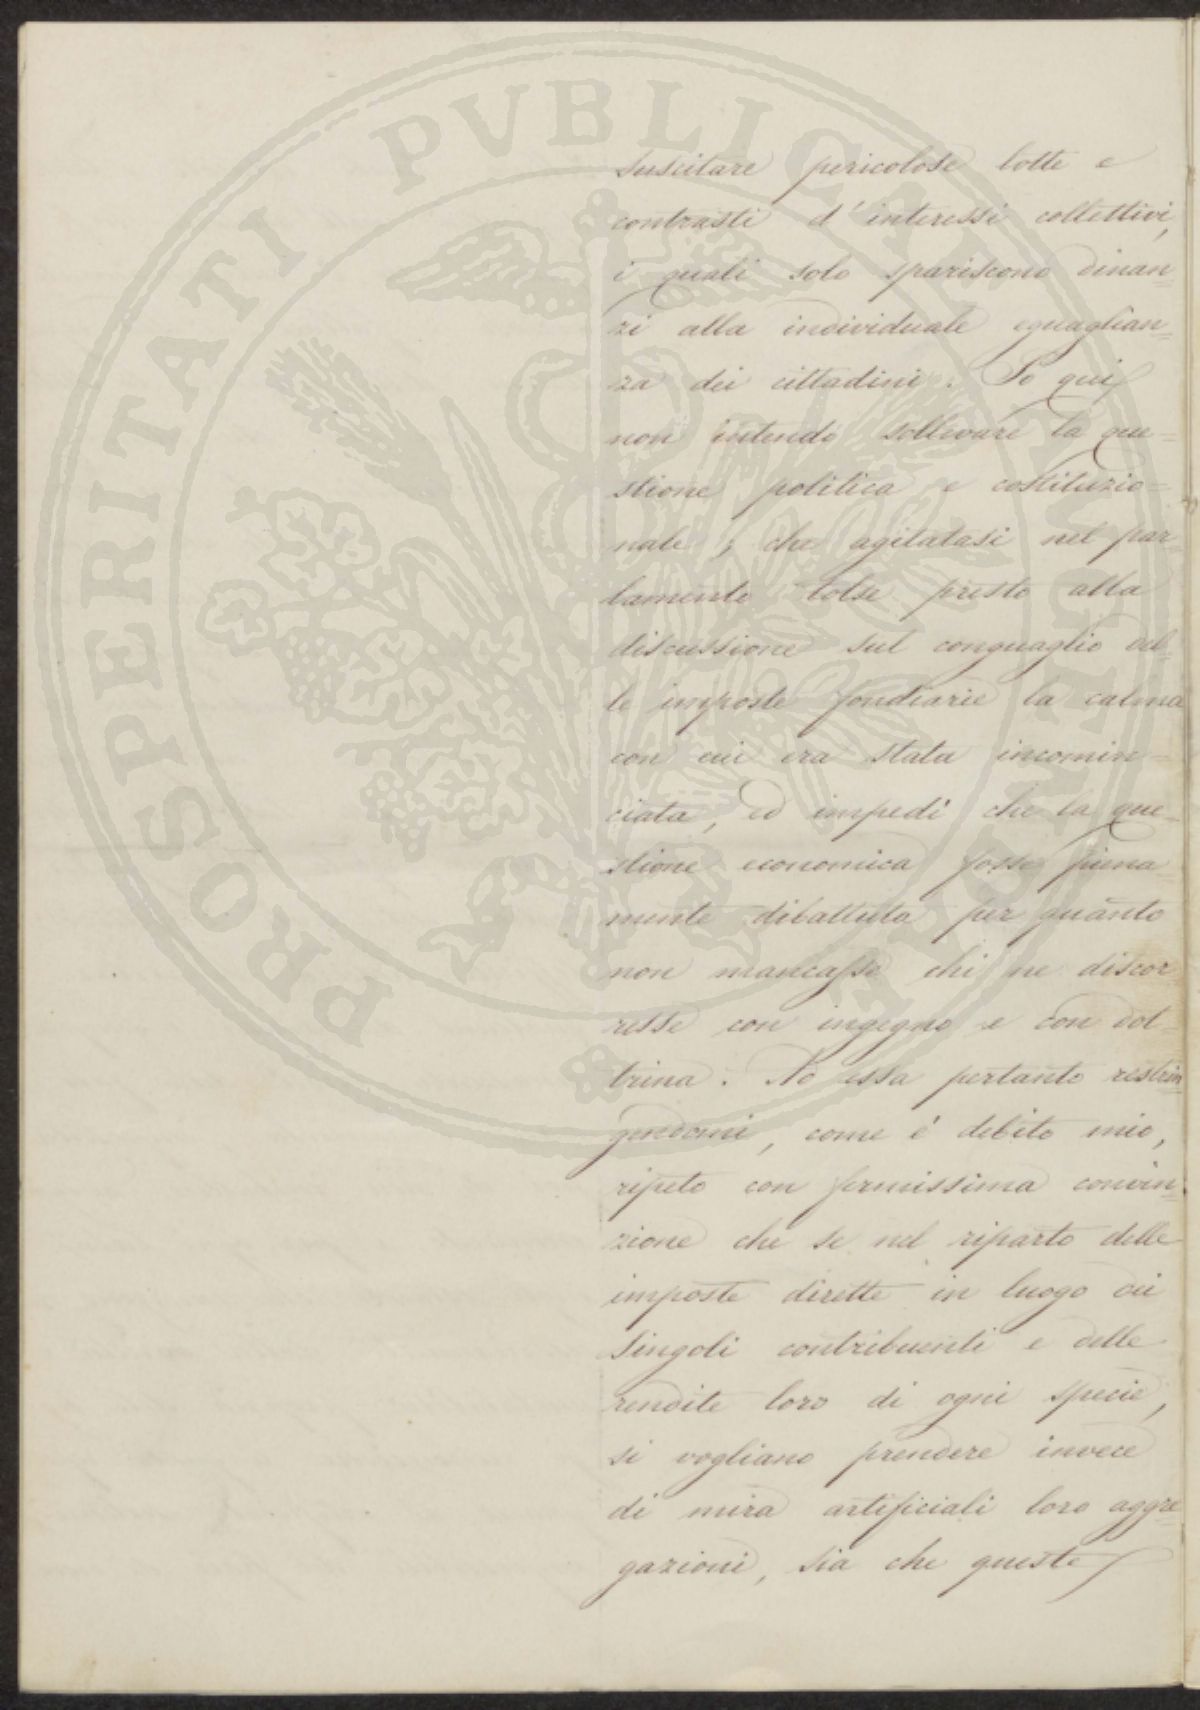 PROSPERITATI PUBLICAE AUGENDAE
suscitare pericolose lotte e
contrasti d'interessi collettivi,
i quali solo spariscono dinan=
zi alla individuale eguaglian=
za dei cittadini. Io qui
non intendo sollevare la que=
stione politica e costituzio=
nale; che agitatasi nel par=
lamento tolse presto alla
discussione sul conguaglio del=
le imposte fondiarie la calma
con cui era stata incomin=
ciata, ed impedì che la que=
stione economica fosse piena
mente dibattuta per quanto
non mancasse chi ne discor
resse con ingegno e con dot=
trina. Ad essa pertanto restrin=
gendomi, come è debito mio,
ripeto con fermissima convin=
zione che se nel riparto delle
imposte dirette in luogo dei
singoli contribuenti e delle
rendite loro di ogni specie,
si vogliano prendere invece
di mira artificiali loro aggre=
gazioni, sia che queste